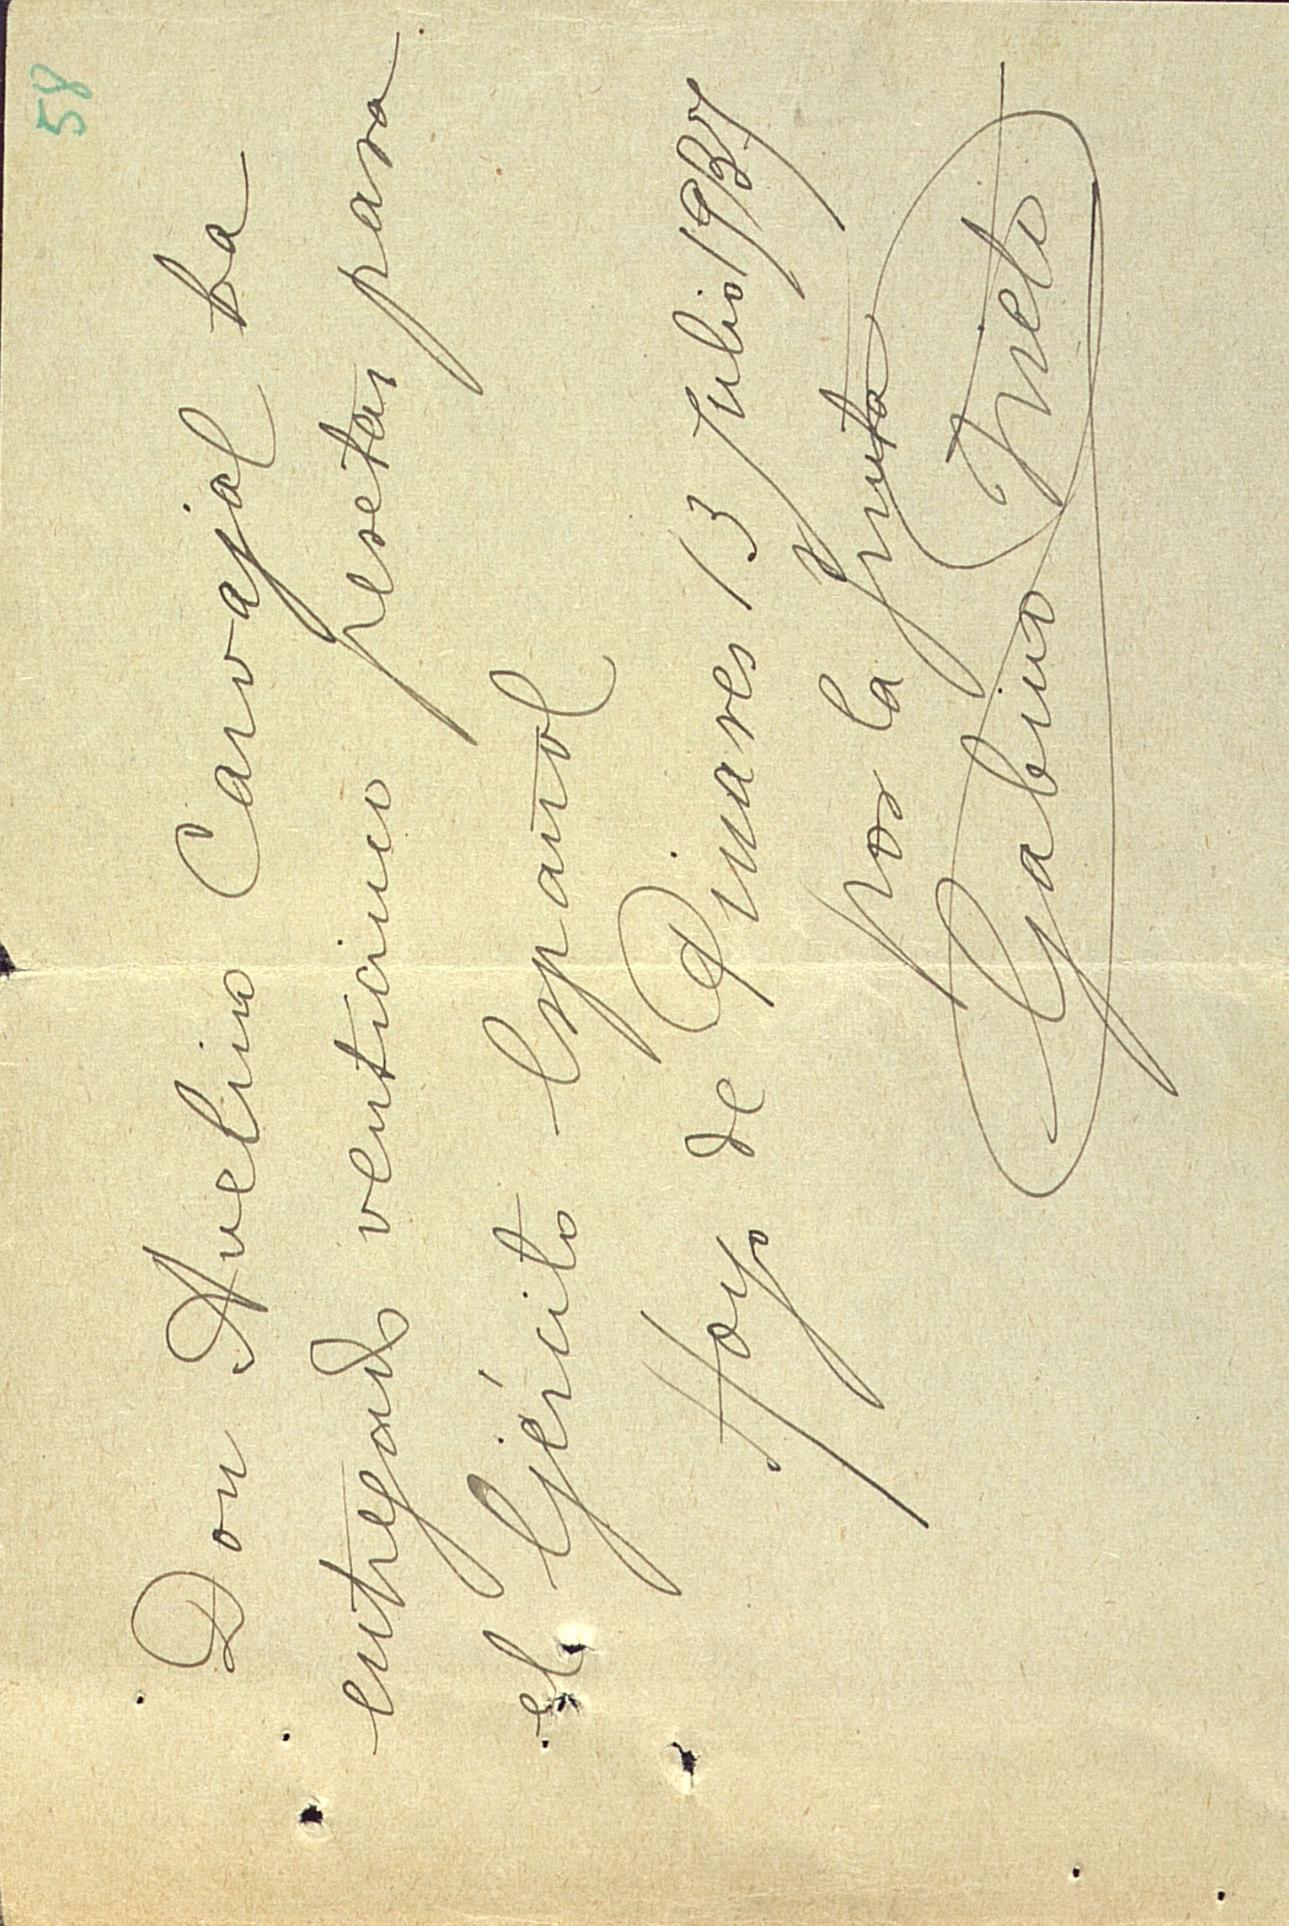 58
Don Avelino Carvajal ha
entregado venticinco pesetas para
el Ejército Español
Hoyo de Pinares 13 Julio 1937
por la Junta
Gabino Nieto